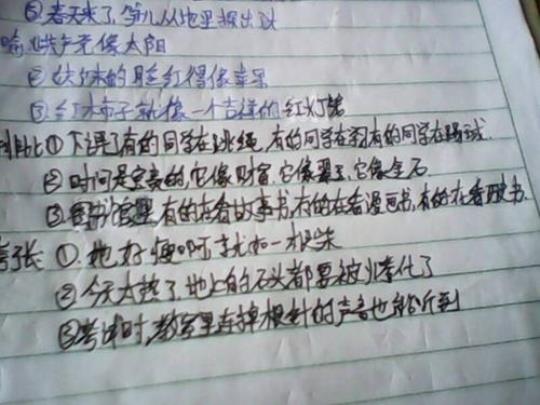 ③春天来了,笋儿从地里探出头
喻 ①共产党像太阳
② 妹妹的脸红得像苹果
③红柿子就像一个吉祥的红灯笼
排比①下课了有的同学在跳绳,有的同学在 有的同学在踢球.
②时间是宝贵的,它像财富,它像 它像金石
③图书馆里,有的在看故事书,有的在看漫画书,有的在看 书.
夸张 ①.她好瘦啊就如一根柴
②今天太热了,地上的石头都要被烤化了
③考试时,教室里连掉根针的声音也能听到